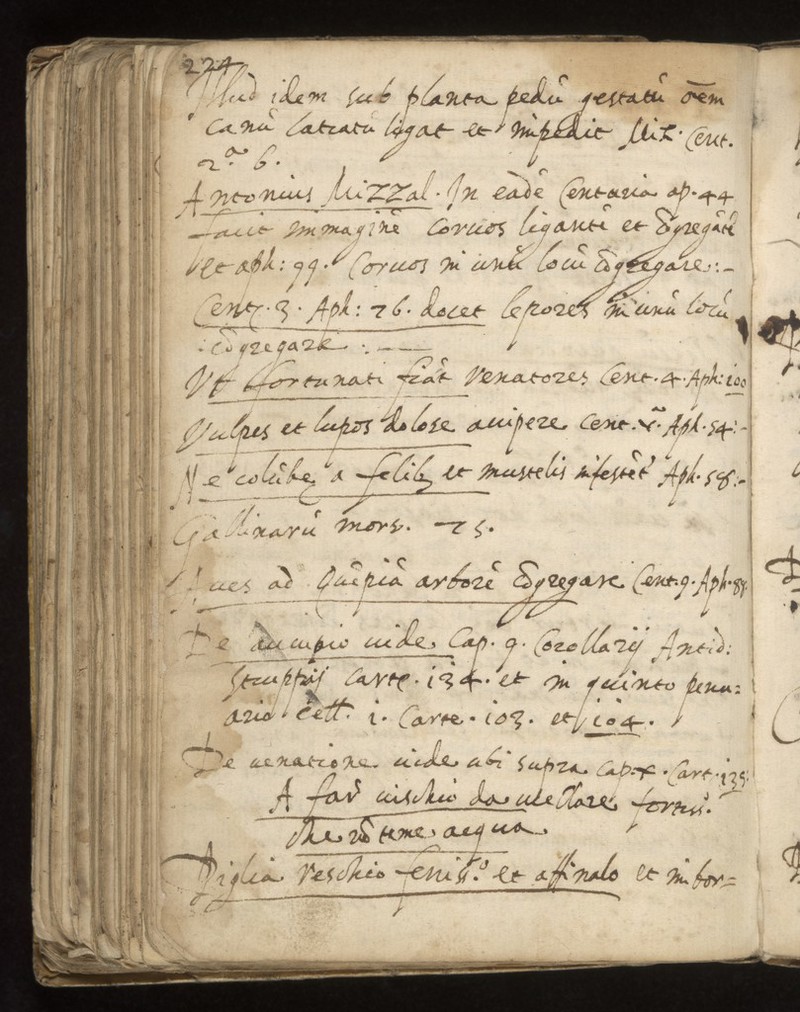 224
Illud idem sub planta pedũ gestatũ oẽm
canũ latratũ ligat et impedit Miz. Cent.
2.ª 6.
Antonius Mizzal. In eadẽ Centuria ap. 44
facit immaginẽ coruos ligantẽ et
Et aph: 99. Coruos in unũ locũ cõgregare:-
Cent. 3. Aph: 76. docet lepores in unũ locũ
:cõgregare:—
Ut fortunati fiãt venatores Cent. 4. Aph: 100
Vulpes et lupos dolose accipere cent. Aph. 54:-
Ne colũbę a felib; et mustelis infestẽt Aph. 58:-
Gallinarũ mors. 75.
Aues ad quẽpiã arborẽ cõgregare Cent. 9. Aph. 88
De aucupio uide Cap. 9. Corollarij Antid:
Carte. 134. et in quinto penu=
ario i. Carte. 103. et 104.
De uenatione uide ubi supra cap. Cart. 135:
A far uischio da uccellare
che nõ teme acqua
Piglia veschio et affinalo et in bor=